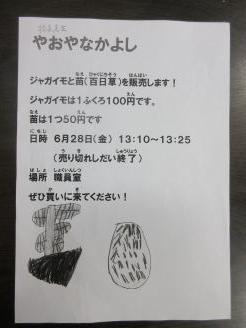 やおやなかよし
ジャガイモと苗(百日草)を販売します!
ジャガイモは1ふくろ100円です。
苗は1つ50円です
日時 6月28日(金) 13:10~13:25
(売り切れしだい終了)
場所 職員室
ぜひ買いに来てください!